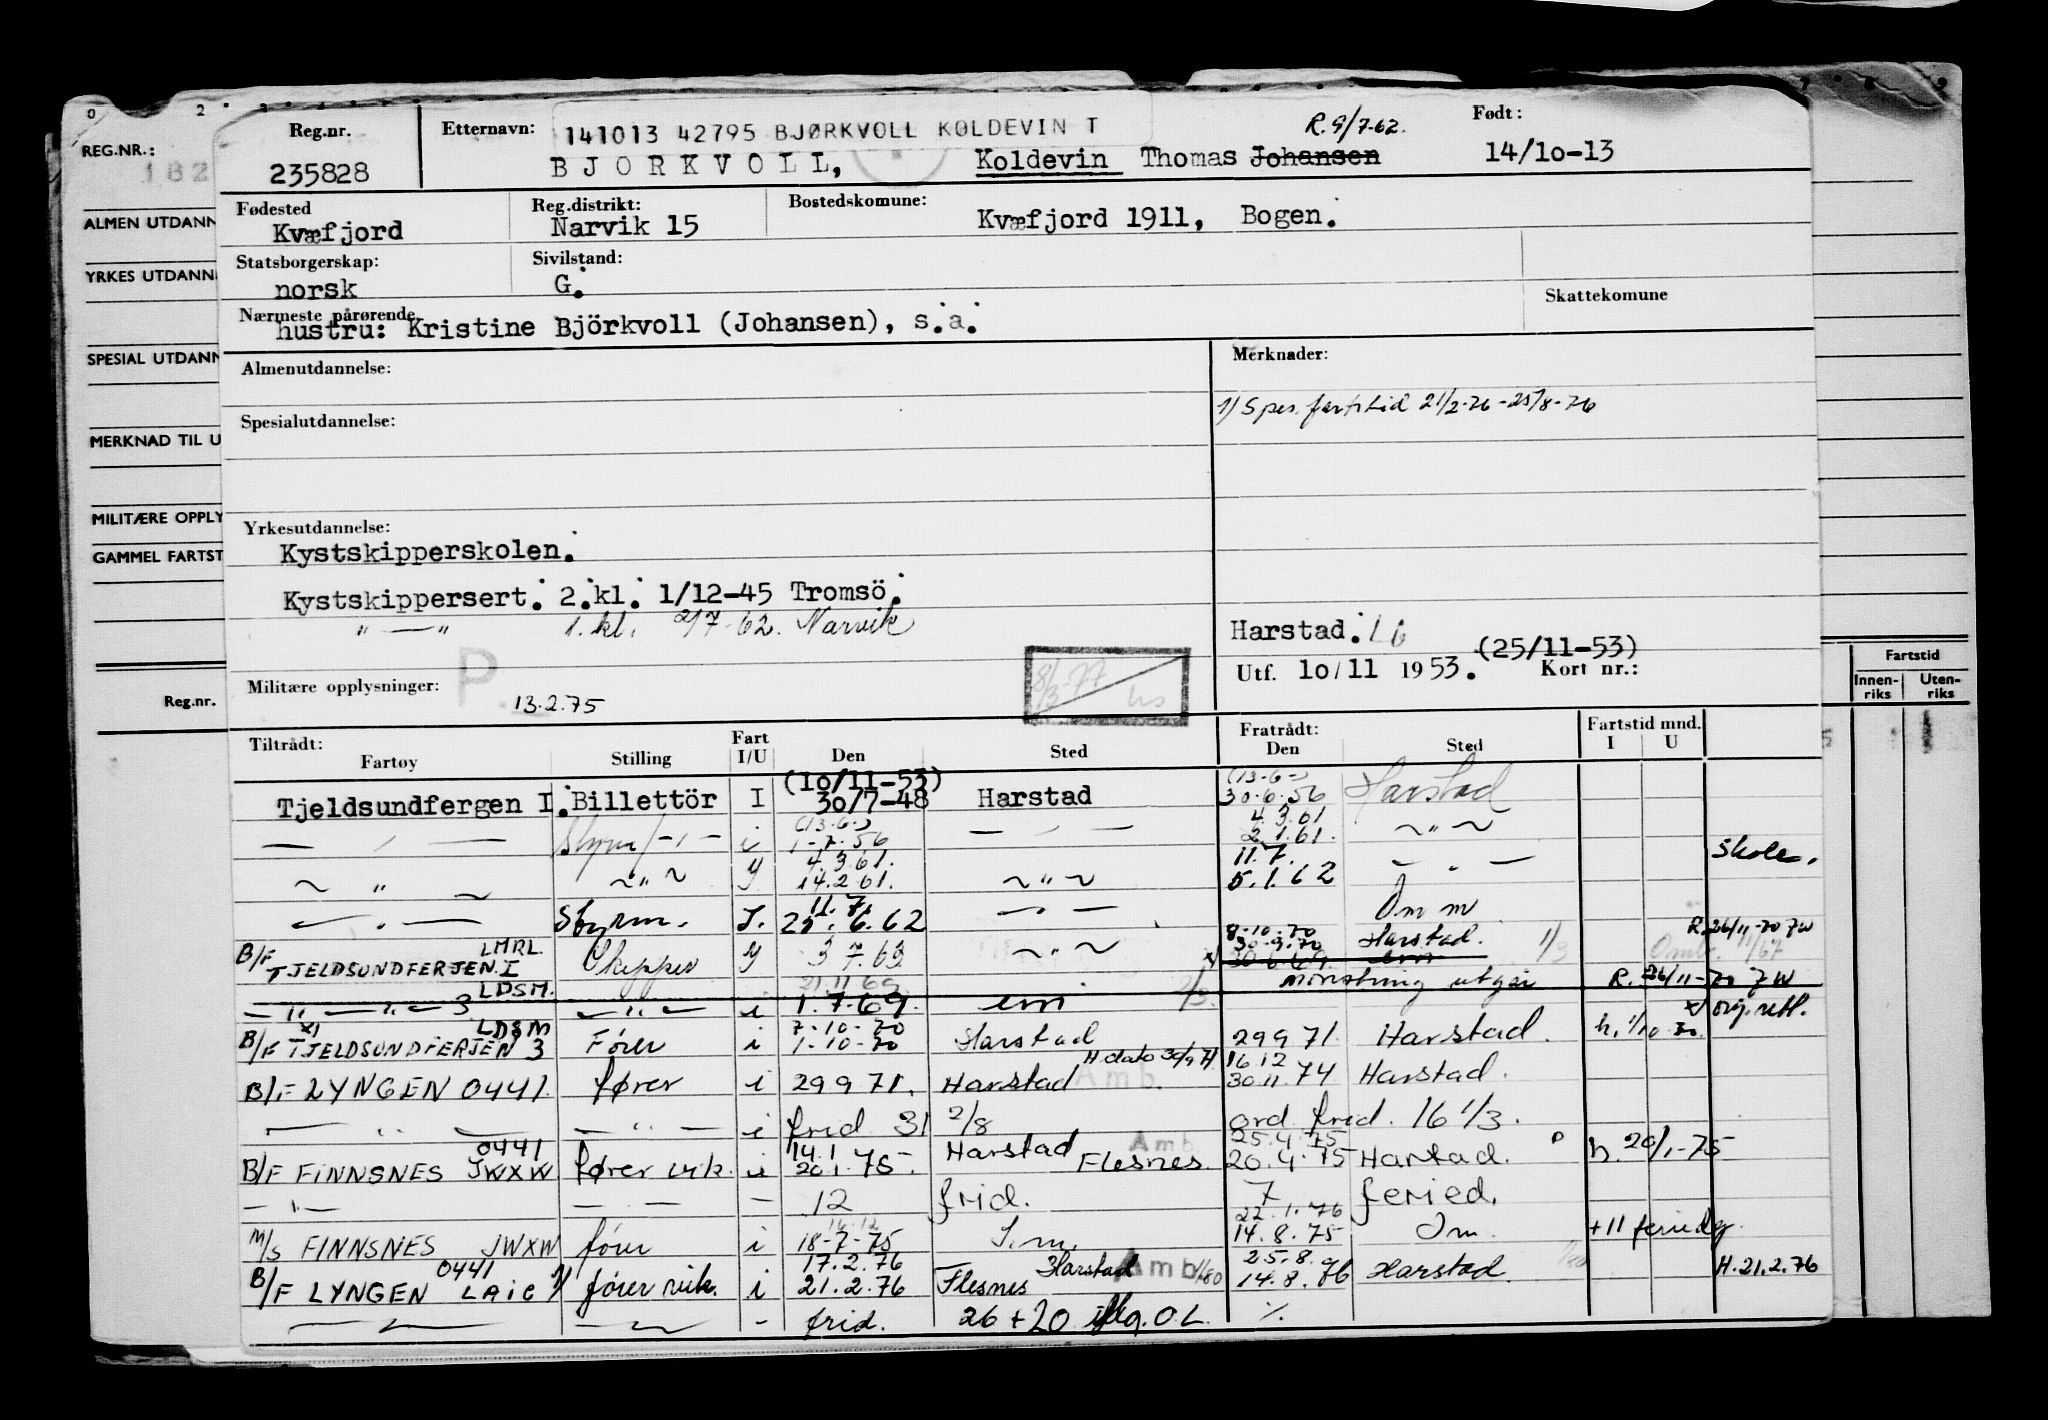 Reg.nr. Etternavn: 141013 42795 BJØRKVOLL KOLDEVIN T R. 9/7-62. Født:
235828 BJORKVOLL, Koldevin Thomas Johansen 14/10-13
REG.NR.:
182
Fødested Reg.distrikt: Bostedskomune:
Kvæfjord Narvik 15 Kvæfjord 1911, Bogen.
ALMEN UTDANN
Statsborgerskap: Sivilstand:
norsk G.
YRKES UTDANN
Nærmeste pårørende Skattekomune
hustru: Kristine Björkvoll (Johansen), s.a.
SPESIAL UTDANN
Almenutdannelse: Merknader:
1) Spes. fartstid 21/2-76-25/8-76
Spesialutdannelse:
MERKNAD TIL U
MILITÆRE OPPLY
Yrkesutdannelse:
Kystskipperskolen.
GAMMEL FARTST
Kystskippersert. 2.kl. 1/12-45 Tromsö.
" — " 1. kl. 2/7-62. Narvik
Harstad. 16
(25/11-53)
Utf. 10/11 1953. Kort nr.:
Militære opplysninger: P 13.2.75
8/3-77 hs
Reg.nr.
Fartstid
Innen-riks Uten-riks
Tiltrådt: Fratrådt: Fartstid mnd.
Fartøy Stilling Fart I/U Den Sted Den Sted I U
(10/11-53) (13-6-)
Tjeldsundfergen I. Billettör I 30/7-48 Harstad 30.6.56 Harstad
(13.6-) 4.3.61
— " — Styrm — " — i 1-7.56 — " — 2.1.61. ~ " ~
4.3.61. 11.7. Skole.
~ " ~ ~ " ~ y 14.2.61. ~ " ~ 5.1.62 — " —
11.7.
— " — Styrm. I. 25.6.62 — " — Om m
8-10.70 R. 26/11-70 7W
B/F TJELDSUNDFERJEN I LMRL. Skipper y 3 7.63 ~ " ~ 30.9.70 Harstad. 1/3
30.6.69. mønstring utgår R. 26/11-70 7W
21.11 69
— " — " — 3 LDSM. — " — i 1.7.69. em 2/3. x) orig. rett.
7-10-70
B/F TJELDSUNDFERJEN 3 x) LDSM Fører i 1-10-70 Harstad 29 9 71. Harstad. h. 1/10-70.
H dato 30/9 71 16.12
B/F LYNGEN 0441. fører i 29 9 71. Harstad Amb. 30.11.74 Harstad.
— " — — " — i frid 31 2/8 ord. frid. 16 1/3.
14.1 Amb 25.4.75
B/F FINNSNES 0441 JWXW fører vik. i 20.1.75. Harstad Flesnes. 20.4.75 Harstad. h. 20/1-75
— " — — — — 12 frid. 7 feried.
16.12 22.1.76
M/S FINNSNES JWXW fører i 18-7-75 I.m. 14.8.75 Om +11 feriedg.
17.2.76 25.8.
B/F LYNGEN 0441 LAIC 1) fører vik. i 21.2.76 Flesnes Harstad Amb 1/80 14.8.76 Harstad. H. 21.2.76
— " — — " — - frid. 26 + 20 iflg. O.L. ./.